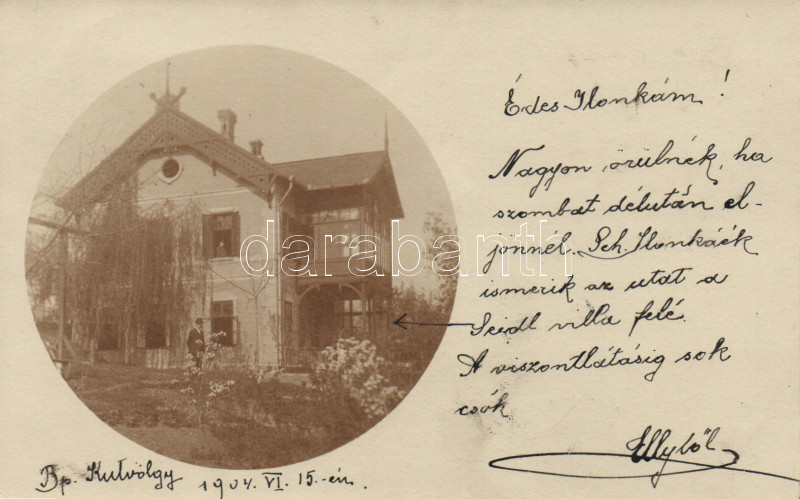 Édes Ilonkám!
Nagyon örülnék, ha
szombat délután el-
jönnél. Sch. Ilonkáék
ismerik az utat a
Seidl villa felé.
A viszontlátásig sok
csók
Ellytől
Bp. Kutvölgy 1904. VI. 15.-én.
darabanth